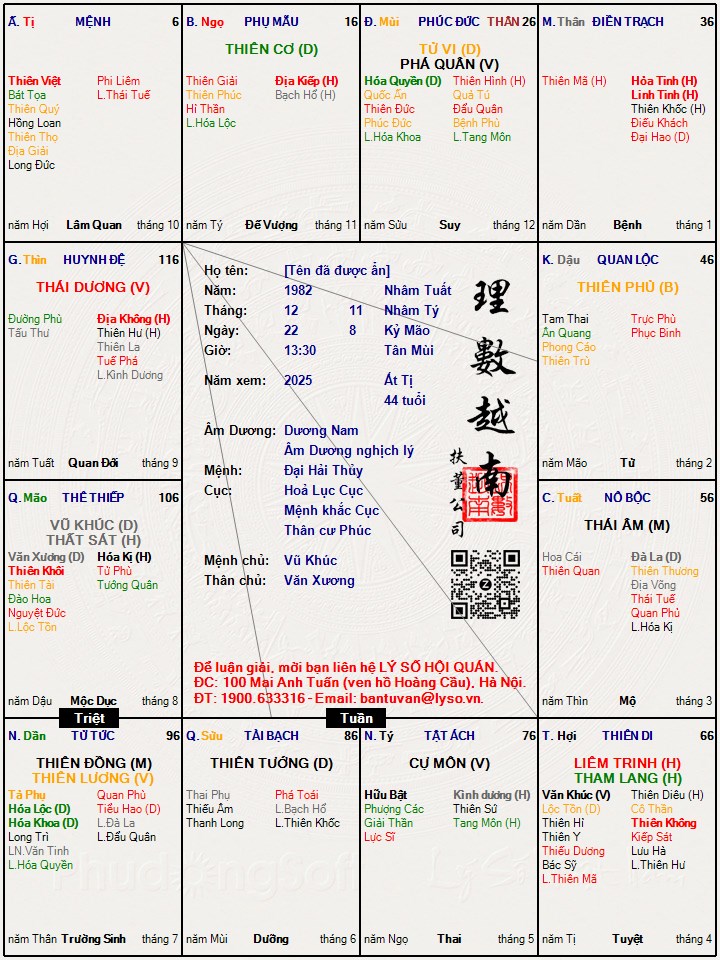 Ấ. Tị MỆNH 6
Thiên Việt Phi Liêm
Bát Tọa L.Thái Tuế
Thiên Quý
Hồng Loan
Thiên Thọ
Địa Giải
Long Đức
năm Hợi Lâm Quan tháng 10
B. Ngọ PHỤ MẪU 16
THIÊN CƠ (D)
Thiên Giải Địa Kiếp (H)
Thiên Phúc Bạch Hổ (H)
Hỉ Thần
L.Hóa Lộc
năm Tý Đế Vượng tháng 11
Đ. Mùi PHÚC ĐỨC THÂN 26
TỬ VI (D)
PHÁ QUÂN (V)
Hóa Quyền (D) Thiên Hình (H)
Quốc Ấn Quả Tú
Thiên Đức Đẩu Quân
Phúc Đức Bệnh Phù
L.Hóa Khoa L.Tang Môn
năm Sửu Suy tháng 12
M. Thân ĐIỀN TRẠCH 36
Thiên Mã (H) Hỏa Tinh (H)
Linh Tinh (H)
Thiên Khốc (H)
Điếu Khách
Đại Hao (D)
năm Dần Bệnh tháng 1
G. Thìn HUYNH ĐỆ 116
THÁI DƯƠNG (V)
Đường Phù Địa Không (H)
Tấu Thư Thiên Hư (H)
Thiên La
Tuế Phá
L.Kình Dương
năm Tuất Quan Đới tháng 9
Họ tên: [Tên đã được ẩn]
Năm: 1982 Nhâm Tuất
Tháng: 12 11 Nhâm Tý
Ngày: 22 8 Kỷ Mão
Giờ: 13:30 Tân Mùi
Năm xem: 2025 Ất Tị
44 tuổi
Âm Dương: Dương Nam
Âm Dương nghịch lý
Mệnh: Đại Hải Thủy
Cục: Hoả Lục Cục
Mệnh khắc Cục
Thân cư Phúc
Mệnh chủ: Vũ Khúc
Thân chủ: Văn Xương
理數越南
扶董公司
Để luận giải, mời bạn liên hệ LÝ SỐ HỘI QUÁN.
ĐC: 100 Mai Anh Tuấn (ven hồ Hoàng Cầu), Hà Nội.
ĐT: 1900.633316 - Email: bantuvan@lyso.vn.
K. Dậu QUAN LỘC 46
THIÊN PHỦ (B)
Tam Thai Trực Phù
Ân Quang Phục Binh
Phong Cáo
Thiên Trù
năm Mão Tử tháng 2
Q. Mão THÊ THIẾP 106
VŨ KHÚC (D)
THẤT SÁT (H)
Văn Xương (D) Hóa Kị (H)
Thiên Khôi Tử Phù
Thiên Tài Tướng Quân
Đào Hoa
Nguyệt Đức
L.Lộc Tồn
năm Dậu Mộc Dục tháng 8
C. Tuất NÔ BỘC 56
THÁI ÂM (M)
Hoa Cái Đà La (D)
Thiên Quan Thiên Thương
Địa Võng
Thái Tuế
Quan Phủ
L.Hóa Kị
năm Thìn Mộ tháng 3
Triệt
Tuần
N. Dần TỬ TỨC 96
THIÊN ĐỒNG (M)
THIÊN LƯƠNG (V)
Tả Phụ Quan Phù
Hóa Lộc (D) Tiểu Hao (D)
Hóa Khoa (D) L.Đà La
Long Trì L.Đẩu Quân
LN.Văn Tinh
L.Hóa Quyền
năm Thân Trường Sinh tháng 7
Q. Sửu TÀI BẠCH 86
THIÊN TƯỚNG (D)
Thai Phụ Phá Toái
Thiếu Âm L.Bạch Hổ
Thanh Long L.Thiên Khốc
năm Mùi Dưỡng tháng 6
N. Tý TẬT ÁCH 76
CỰ MÔN (V)
Hữu Bật Kình dương (H)
Phượng Các Thiên Sứ
Giải Thần Tang Môn (H)
Lực Sĩ
năm Ngọ Thai tháng 5
T. Hợi THIÊN DI 66
LIÊM TRINH (H)
THAM LANG (H)
Văn Khúc (V) Thiên Diêu (H)
Lộc Tồn (D) Cô Thần
Thiên Hỉ Thiên Không
Thiên Y Kiếp Sát
Thiếu Dương Lưu Hà
Bác Sỹ L.Thiên Hư
L.Thiên Mã
năm Tị Tuyệt tháng 4